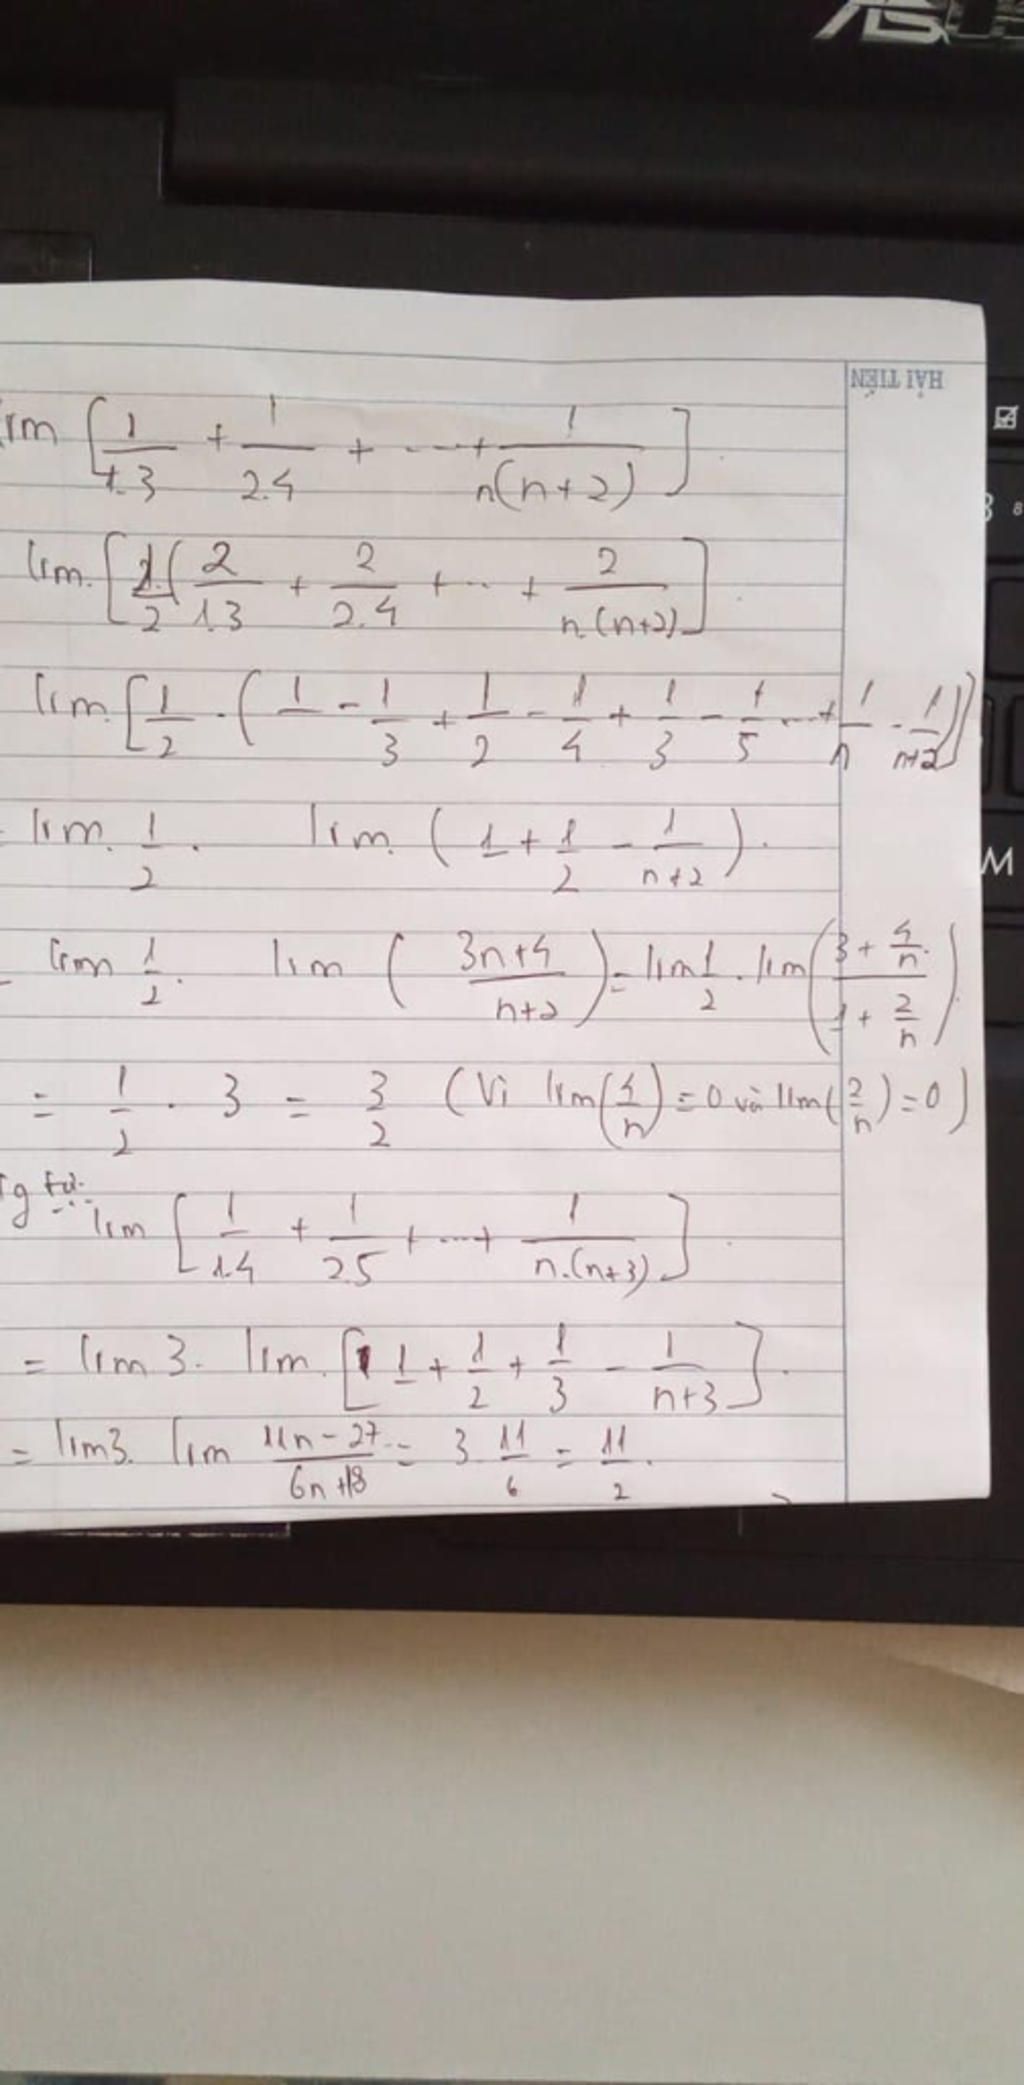 ASUS
HẢI TIẾN
lim [1/1.3 + 1/2.4 + ... + 1/n(n+2)]
8
lim. [1/2 (2/1.3 + 2/2.4 + ... + 2/n.(n+2)]
lim. [1/2 . (1 - 1/3 + 1/2 - 1/4 + 1/3 - 1/5 ... + 1/n - 1/n+2)]
lim. 1/2 . lim. (1 + 1/2 - 1/n+2).
M
lim 1/2 . lim (3n+4/n+2) = lim 1/2 . lim (3 + 4/n / 1 + 2/n).
= 1/2 . 3 = 3/2 (Vì lim(4/n) = 0 và lim(2/n) = 0)
g tự:
lim [1/1.4 + 1/2.5 + ... + 1/n.(n+3)].
= lim 3. lim. [1 + 1/2 + 1/3 - 1/n+3].
= lim 3. lim 11n - 27/6n + 18 = 3 11/6 = 11/2.